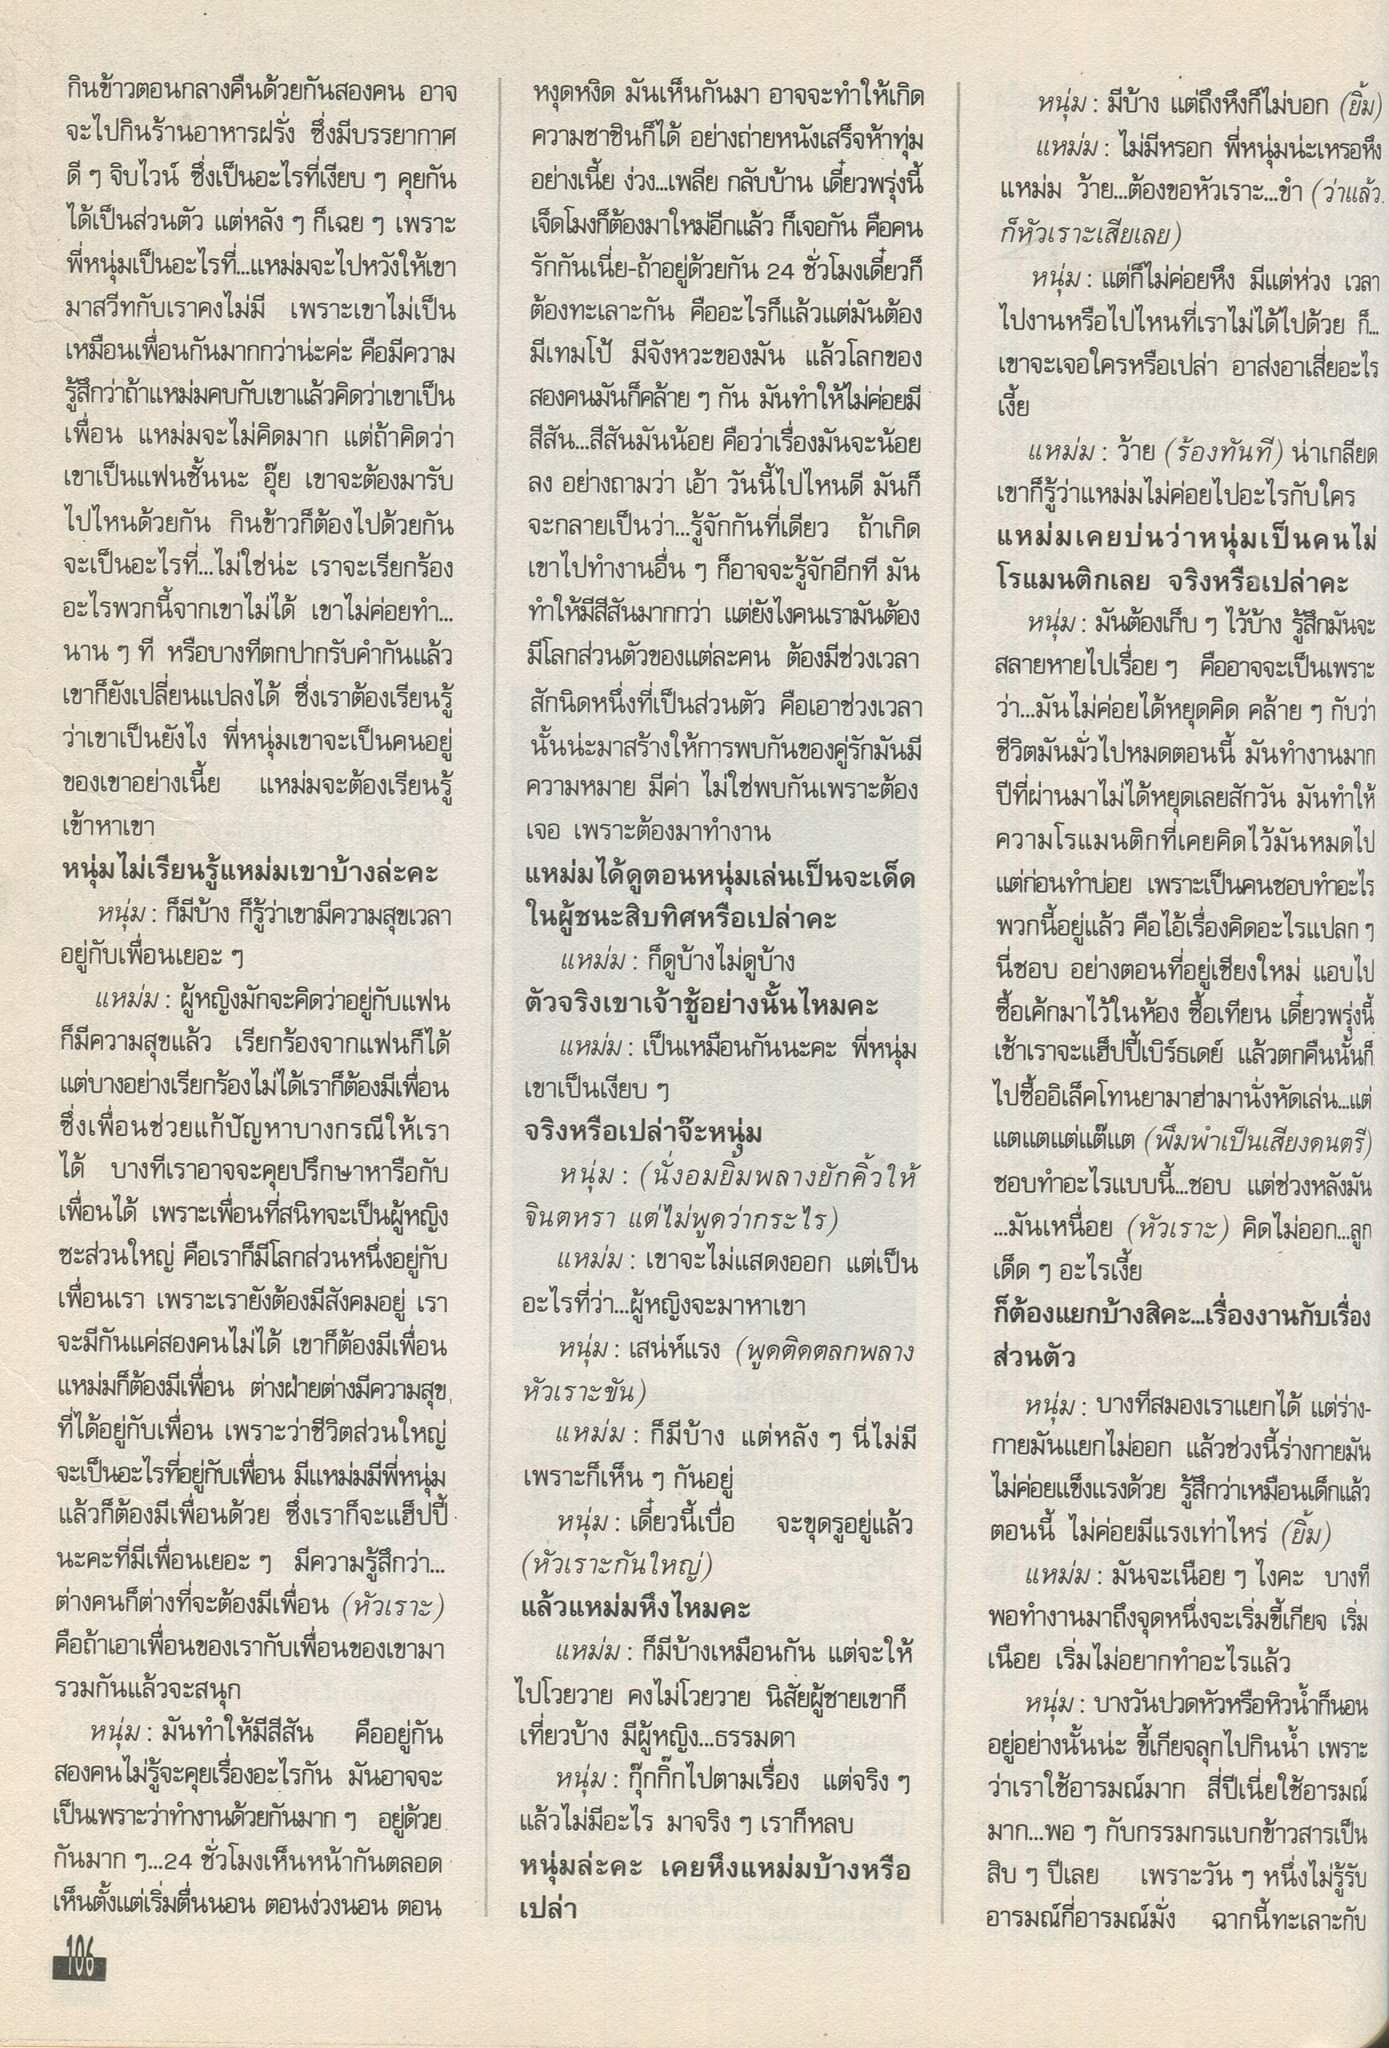 กินข้าวตอนกลางคืนด้วยกันสองคน อาจ
จะไปกินร้านอาหารฝรั่ง ซึ่งมีบรรยากาศ
ดี ๆ จิบไวน์ ซึ่งเป็นอะไรที่เงียบ ๆ คุยกัน
ได้เป็นส่วนตัว แต่หลัง ๆ ก็เฉย ๆ เพราะ
พี่หนุ่มเป็นอะไรที่...แหม่มจะไปหวังให้เขา
มาสวีทกับเราคงไม่มี เพราะเขาไม่เป็น
เหมือนเพื่อนกันมากกว่าน่ะค่ะ คือมีความ
รู้สึกว่าถ้าแหม่มคบกับเขาแล้วคิดว่าเขาเป็น
เพื่อน แหม่มจะไม่คิดมาก แต่ถ้าคิดว่า
เขาเป็นแฟนชั้นนะ อุ๊ย เขาจะต้องมารับ
ไปไหนด้วยกัน กินข้าวก็ต้องไปด้วยกัน
จะเป็นอะไรที่...ไม่ใช่น่ะ เราจะเรียกร้อง
อะไรพวกนี้จากเขาไม่ได้ เขาไม่ค่อยทำ...
นาน ๆ ที หรือบางทีตกปากรับคำกันแล้ว
เขาก็ยังเปลี่ยนแปลงได้ ซึ่งเราต้องเรียนรู้
ว่าเขาเป็นยังไง พี่หนุ่มเขาจะเป็นคนอยู่
ของเขาอย่างเนี้ย แหม่มจะต้องเรียนรู้
เข้าหาเขา
หนุ่มไม่เรียนรู้แหม่มเขาบ้างล่ะคะ
หนุ่ม : ก็มีบ้าง ก็รู้ว่าเขามีความสุขเวลา
อยู่กับเพื่อนเยอะ ๆ
แหม่ม : ผู้หญิงมักจะคิดว่าอยู่กับแฟน
ก็มีความสุขแล้ว เรียกร้องจากแฟนก็ได้
แต่บางอย่างเรียกร้องไม่ได้เราก็ต้องมีเพื่อน
ซึ่งเพื่อนช่วยแก้ปัญหาบางกรณีให้เรา
ได้ บางทีเราอาจจะคุยปรึกษาหารือกับ
เพื่อนได้ เพราะเพื่อนที่สนิทจะเป็นผู้หญิง
ซะส่วนใหญ่ คือเราก็มีโลกส่วนหนึ่งอยู่กับ
เพื่อนเรา เพราะเรายังต้องมีสังคมอยู่ เรา
จะมีกันแค่สองคนไม่ได้ เขาก็ต้องมีเพื่อน
แหม่มก็ต้องมีเพื่อน ต่างฝ่ายต่างมีความสุข
ที่ได้อยู่กับเพื่อน เพราะว่าชีวิตส่วนใหญ่
จะเป็นอะไรที่อยู่กับเพื่อน มีแหม่มมีพี่หนุ่ม
แล้วก็ต้องมีเพื่อนด้วย ซึ่งเราก็จะแฮ็ปปี้
นะคะที่มีเพื่อนเยอะ ๆ มีความรู้สึกว่า...
ต่างคนก็ต่างที่จะต้องมีเพื่อน (หัวเราะ)
คือถ้าเอาเพื่อนของเรากับเพื่อนของเขามา
รวมกันแล้วจะสนุก
หนุ่ม : มันทำให้มีสีสัน คืออยู่กัน
สองคนไม่รู้จะคุยเรื่องอะไรกัน มันอาจจะ
เป็นเพราะว่าทำงานด้วยกันมาก ๆ อยู่ด้วย
กันมาก ๆ...24 ชั่วโมงเห็นหน้ากันตลอด
เห็นตั้งแต่เริ่มตื่นนอน ตอนง่วงนอน ตอน
หงุดหงิด มันเห็นกันมา อาจจะทำให้เกิด
ความชาชินก็ได้ อย่างถ่ายหนังเสร็จห้าทุ่ม
อย่างเนี้ย ง่วง...เพลีย กลับบ้าน เดี๋ยวพรุ่งนี้
เจ็ดโมงก็ต้องมาใหม่อีกแล้ว ก็เจอกัน คือคน
รักกันเนี่ย-ถ้าอยู่ด้วยกัน 24 ชั่วโมงเดี๋ยวก็
ต้องทะเลาะกัน คืออะไรก็แล้วแต่มันต้อง
มีเทมโป้ มีจังหวะของมัน แล้วโลกของ
สองคนมันก็คล้าย ๆ กัน มันทำให้ไม่ค่อยมี
สีสัน...สีสันมันน้อย คือว่าเรื่องมันจะน้อย
ลง อย่างถามว่า เอ้า วันนี้ไปไหนดี มันก็
จะกลายเป็นว่า...รู้จักกันที่เดียว ถ้าเกิด
เขาไปทำงานอื่น ๆ ก็อาจจะรู้จักอีกที มัน
ทำให้มีสีสันมากกว่า แต่ยังไงคนเรามันต้อง
มีโลกส่วนตัวของแต่ละคน ต้องมีช่วงเวลา
สักนิดหนึ่งที่เป็นส่วนตัว คือเอาช่วงเวลา
นั้นน่ะมาสร้างให้การพบกันของคู่รักมันมี
ความหมาย มีค่า ไม่ใช่พบกันเพราะต้อง
เจอ เพราะต้องมาทำงาน
แหม่มได้ดูตอนหนุ่มเล่นเป็นจะเด็ด
ในผู้ชนะสิบทิศหรือเปล่าคะ
แหม่ม : ก็ดูบ้างไม่ดูบ้าง
ตัวจริงเขาเจ้าชู้อย่างนั้นไหมคะ
แหม่ม : เป็นเหมือนกันนะคะ พี่หนุ่ม
เขาเป็นเงียบ ๆ
จริงหรือเปล่าจ๊ะหนุ่ม
หนุ่ม : (นั่งอมยิ้มพลางยักคิ้วให้
จินตหรา แต่ไม่พูดว่ากระไร)
แหม่ม : เขาจะไม่แสดงออก แต่เป็น
อะไรที่ว่า...ผู้หญิงจะมาหาเขา
หนุ่ม : เสน่ห์แรง (พูดติดตลกพลาง
หัวเราะขัน)
แหม่ม : ก็มีบ้าง แต่หลัง ๆ นี่ไม่มี
เพราะก็เห็น ๆ กันอยู่
หนุ่ม : เดี๋ยวนี้เบื่อ จะขุดรูอยู่แล้ว
(หัวเราะกันใหญ่)
แล้วแหม่มหึงไหมคะ
แหม่ม : ก็มีบ้างเหมือนกัน แต่จะให้
ไปโวยวาย คงไม่โวยวาย นิสัยผู้ชายเขาก็
เที่ยวบ้าง มีผู้หญิง...ธรรมดา
หนุ่ม : กุ๊กกิ๊กไปตามเรื่อง แต่จริง ๆ
แล้วไม่มีอะไร มาจริง ๆ เราก็หลบ
หนุ่มล่ะคะ เคยหึงแหม่มบ้างหรือ
เปล่า
หนุ่ม : มีบ้าง แต่ถึงหึงก็ไม่บอก (ยิ้ม)
แหม่ม : ไม่มีหรอก พี่หนุ่มน่ะเหรอหึง
แหม่ม ว้าย...ต้องขอหัวเราะ...ขำ (ว่าแล้ว
ก็หัวเราะเสียเลย)
หนุ่ม : แต่ก็ไม่ค่อยหึง มีแต่ห่วง เวลา
ไปงานหรือไปไหนที่เราไม่ได้ไปด้วย ก็...
เขาจะเจอใครหรือเปล่า อาส่งอาเสี่ยอะไร
เงี้ย
แหม่ม : ว้าย (ร้องทันที) น่าเกลียด
เขาก็รู้ว่าแหม่มไม่ค่อยไปอะไรกับใคร
แหม่มเคยบ่นว่าหนุ่มเป็นคนไม่
โรแมนติกเลย จริงหรือเปล่าคะ
หนุ่ม : มันต้องเก็บ ๆ ไว้บ้าง รู้สึกมันจะ
สลายหายไปเรื่อย ๆ คืออาจจะเป็นเพราะ
ว่า...มันไม่ค่อยได้หยุดคิด คล้าย ๆ กับว่า
ชีวิตมันมั่วไปหมดตอนนี้ มันทำงานมาก
ปีที่ผ่านมาไม่ได้หยุดเลยสักวัน มันทำให้
ความโรแมนติกที่เคยคิดไว้มันหมดไป
แต่ก่อนทำบ่อย เพราะเป็นคนชอบทำอะไร
พวกนี้อยู่แล้ว คือไอ้เรื่องคิดอะไรแปลก ๆ
นี่ชอบ อย่างตอนที่อยู่เชียงใหม่ แอบไป
ซื้อเค้กมาไว้ในห้อง ซื้อเทียน เดี๋ยวพรุ่งนี้
เช้าเราจะแฮ็ปปี้เบิร์ธเดย์ แล้วตกคืนนั้นก็
ไปซื้ออิเล็คโทนยามาฮ่ามานั่งหัดเล่น...แต่
แตแตแต่แต๊แต (พึมพำเป็นเสียงดนตรี)
ชอบทำอะไรแบบนี้...ชอบ แต่ช่วงหลังมัน
...มันเหนื่อย (หัวเราะ) คิดไม่ออก...ลูก
เด็ด ๆ อะไรเงี้ย
ก็ต้องแยกบ้างสิคะ...เรื่องงานกับเรื่อง
ส่วนตัว
หนุ่ม : บางทีสมองเราแยกได้ แต่ร่าง-
กายมันแยกไม่ออก แล้วช่วงนี้ร่างกายมัน
ไม่ค่อยแข็งแรงด้วย รู้สึกว่าเหมือนเด็กแล้ว
ตอนนี้ ไม่ค่อยมีแรงเท่าไหร่ (ยิ้ม)
แหม่ม : มันจะเนือย ๆ ไงคะ บางที
พอทำงานมาถึงจุดหนึ่งจะเริ่มขี้เกียจ เริ่ม
เนือย เริ่มไม่อยากทำอะไรแล้ว
หนุ่ม : บางวันปวดหัวหรือหิวน้ำก็นอน
อยู่อย่างนั้นน่ะ ขี้เกียจลุกไปกินน้ำ เพราะ
ว่าเราใช้อารมณ์มาก สี่ปีเนี่ยใช้อารมณ์
มาก...พอ ๆ กับกรรมกรแบกข้าวสารเป็น
สิบ ๆ ปีเลย เพราะวัน ๆ หนึ่งไม่รู้รับ
อารมณ์กี่อารมณ์มั่ง ฉากนี้ทะเลาะกับ
106